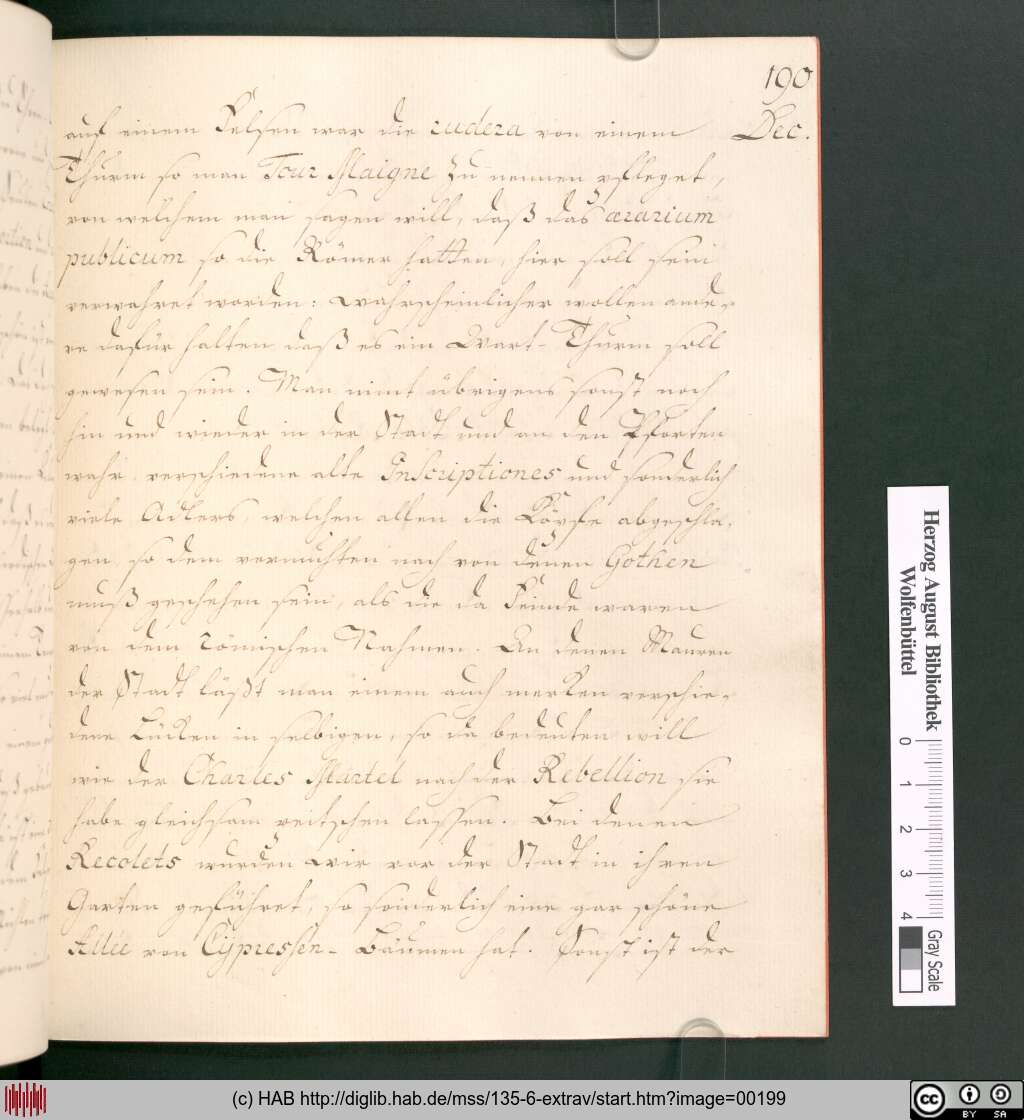 190
Dec.
auf einem Felsen war die rudera von einem
Thurm so man Tour Magne zu nennen pfleget,
von welchem man sagen will, daß das ærarium
publicum so die Römer hatten, hier soll sein
verwahret worden: Wahrscheinlicher wollen ande-
re dafür halten daß es ein Wart-Thurm soll
gewesen sein. Man nimt übrigens sonst noch
hin und wieder in der Stadt und an den Pforten
wahr verschiedene alte Inscriptiones und sonderlich
viele Adlers, welchen allen die Köpfe abgeschla-
gen, so dem vermuhten nach von denen Gothen
muß geschehen sein, als die da Feinde waren
von dem Römischen Nahmen. An denen Mauren
der Stadt läßt man einem auch merken verschie-
dene Lücken in selbigen, so da bedeuten will
wie der Charles Martel nach der Rebellion sie
habe gleichsam peitschen lassen. Bei denen
Recolets wurden wir vor der Stadt in ihren
Garten geführet, so sonderlich eine gar schöne
Allée von Cypressen-Bäumen hat. Sonst ist der
Herzog August Bibliothek
Wolfenbüttel
0 1 2 3 4
Gray Scale
(c) HAB http://diglib.hab.de/mss/135-6-extrav/start.htm?image=00199
cc BY SA